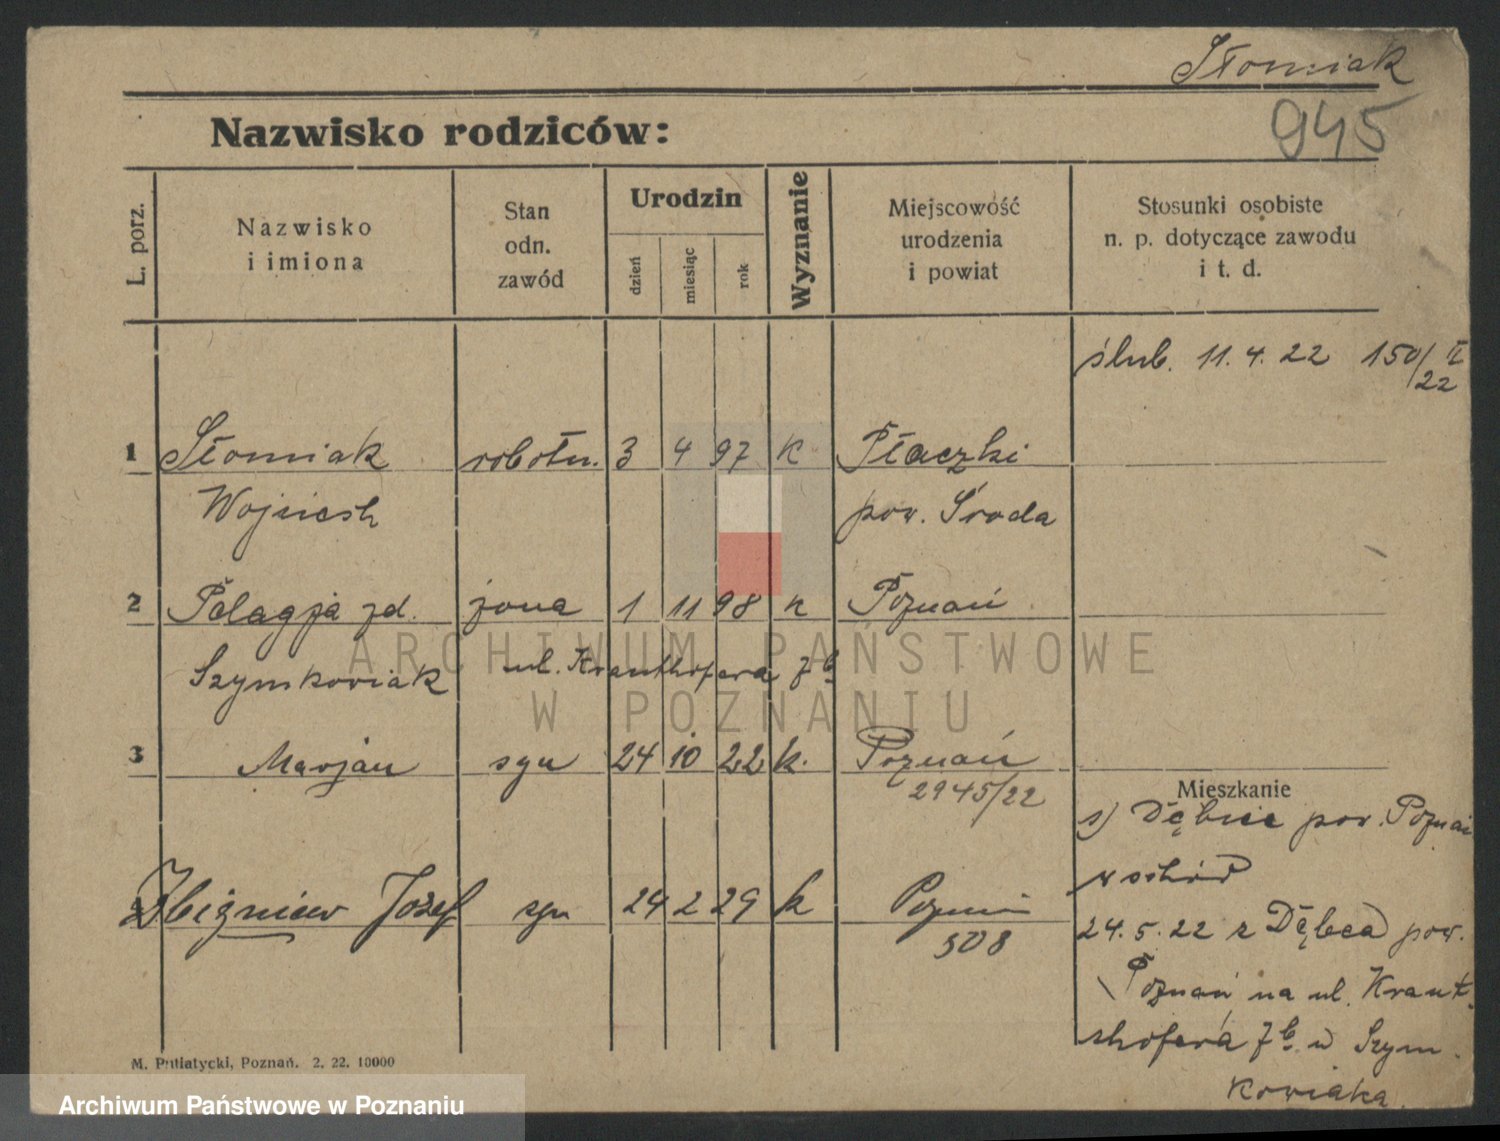 Słomiak
945
Nazwisko rodziców:
L. porz.
Nazwisko
i imiona
Stan
odn.
zawód
Urodzin
dzień
miesiąc
rok
Wyznanie
Miejscowość
urodzenia
i powiat
Stosunki osobiste
n. p. dotyczące zawodu
i t. d.
ślub. 11. 4. 22 150/II 22
1 Słomiak robotn. 3 4 97 K Płaczki
Wojciech pow. Środa
2 Pelagja zd. żona 1 11 98 k Poznań
Szymkowiak ul. Kranthofera 7b
3 Marjan syn 24 10 22 k. Poznań
2945/22
Mieszkanie
s) Dębiec pow. Poznań
wschód
Zbigniew Józef syn 24 2 29 k Poznań
508
24. 5. 22 z Dębca pow.
Poznań na ul. Krant-
shofera 7b u Szym-
kowiaka.
M. Putiatycki, Poznań. 2. 22. 10000
ARCHIWUM PAŃSTWOWE
W POZNANIU
Archiwum Państwowe w Poznaniu